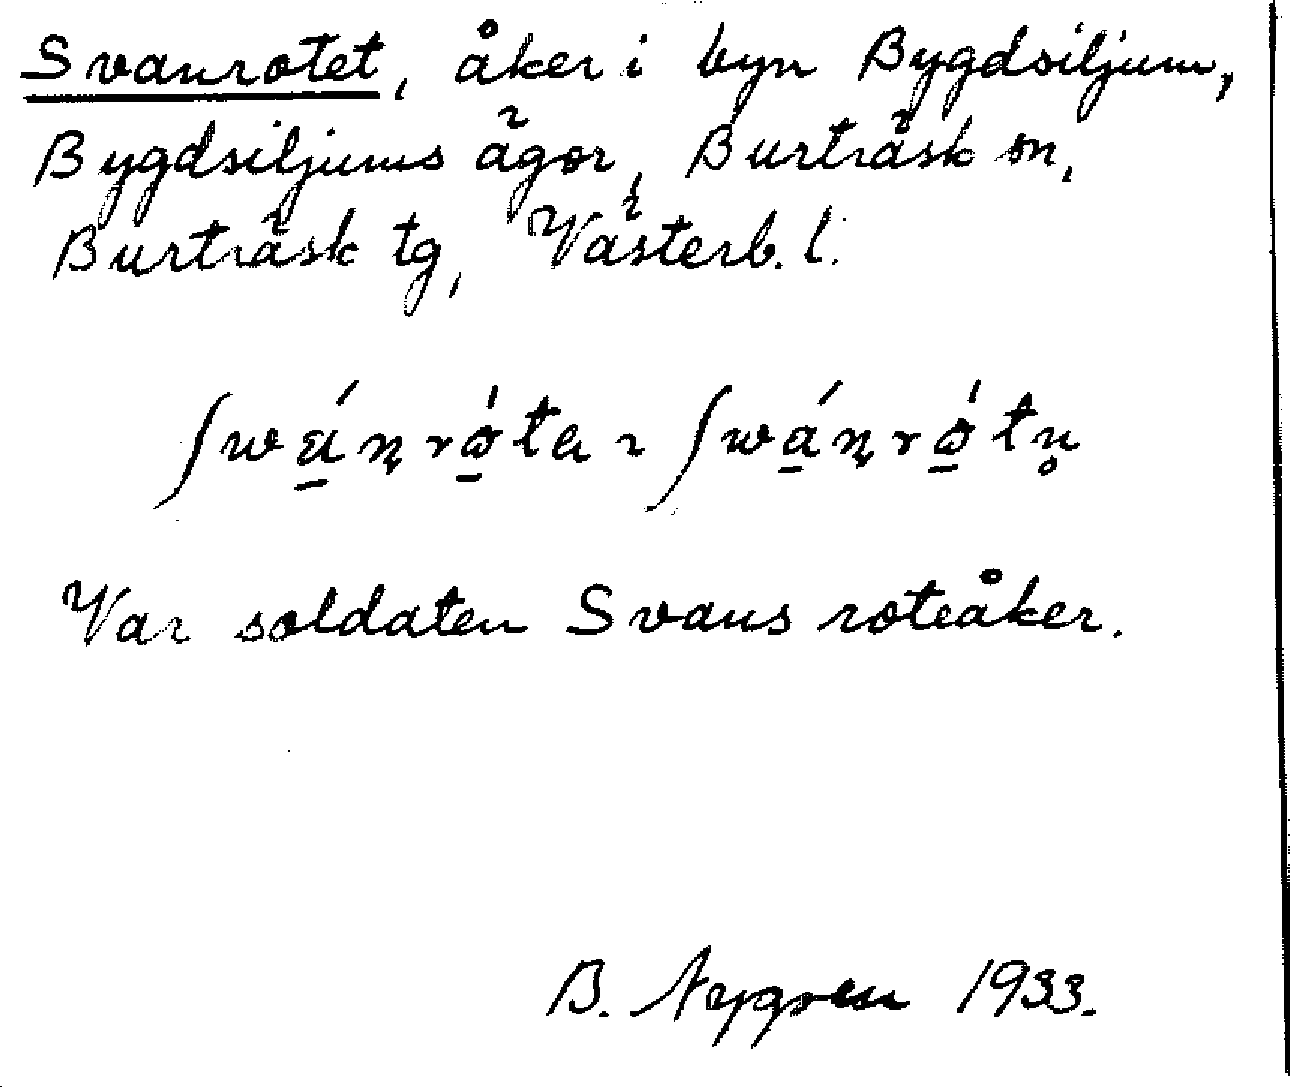 Svanrotet, åker i byn Bygdsiljum,
Bygdsiljums ägor, Burträsk sn,
Burträsk tg, Västerb. l.
Var soldaten Svans roteåker.
B. Nygren 1933.